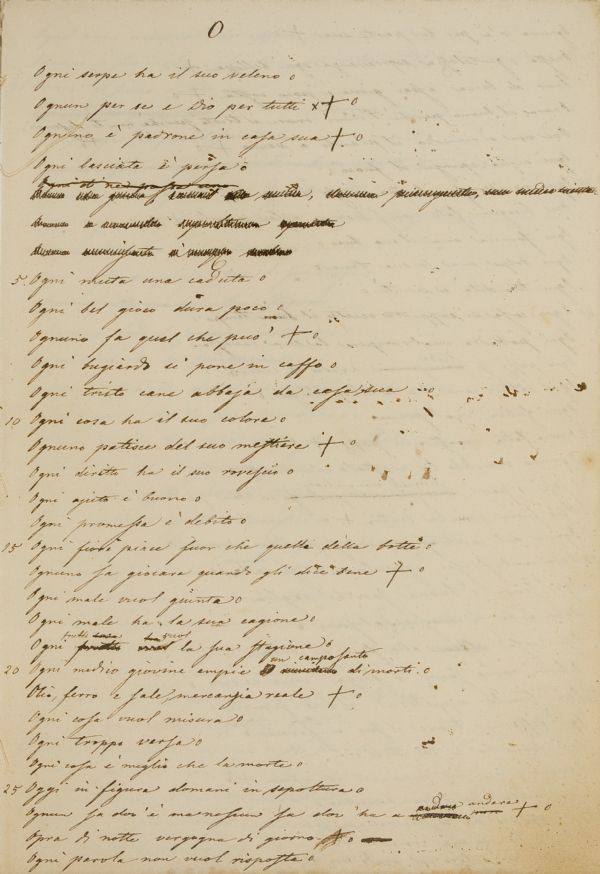 O
Ogni serpe ha il suo veleno o
Ognun per se e Dio per tutti x + o
Ognuno è padrone in casa sua + o
Ogni lasciata è persa o
5. Ogni muta una caduta o
Ogni bel gioco dura poco o
Ognuno fa quel che può + o
Ogni bugiardo si pone in casso o
Ogni tristo cane abbaja da casa sua o
10 Ogni cosa ha il suo colore o
Ognuno patisce del suo mestiere + o
Ogni diritto ha il suo rovescio o
Ogni ajuto è buono o
Ogni promessa è debito o
15 Ogni fiore piace fuor che quello della botte o
Ognuno sa giocare quando gli dice bene + o
Ogni male vuol giunta o
Ogni male ha la sua cagione o
Ogni frutto vuol la sua stagione o
20 Ogni medico giovine empie un camposanto di morti o
Olio, ferro e sale, mercanzia reale + o
Ogni cosa vuol misura o
Ogni troppo versa o
Ogni cosa è meglio che la morte o
25 Oggi in figura domani in sepoltura o
Ognun sa dov'è ma nessun sa dov'ha a andare + o
Opra di notte vergogna di giorno + o
Ogni parola non vuol risposta o